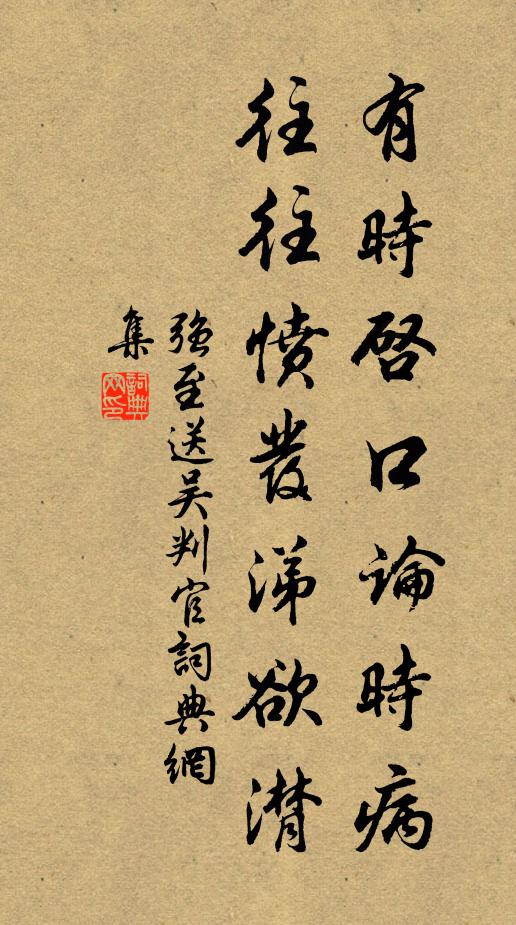 有時啓口論時病
往往憤發涕欲潸
強至送吳判官詞典網
集
詞典
網印